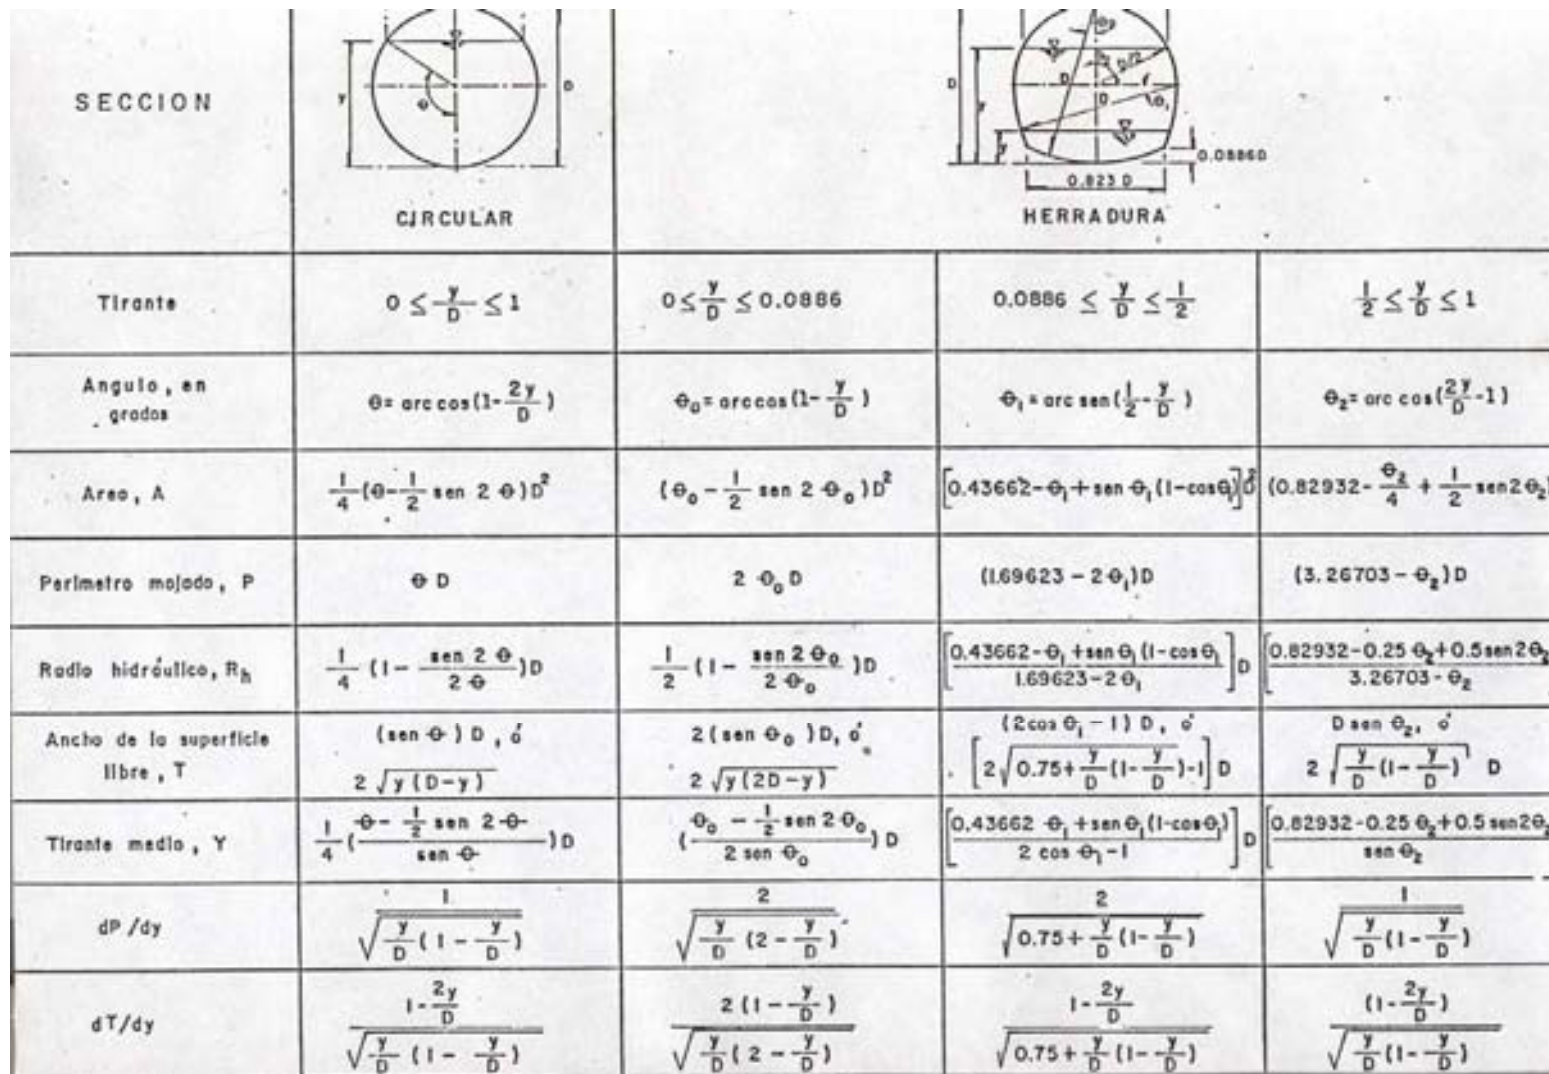 SECCION
y
θ
D
CIRCULAR
θ₂
D/2
D
y
D
r
D
θ₁
y
0.0886D
0.823 D
HERRADURA
Tirante
0 ≤ y/D ≤ 1
0 ≤ y/D ≤ 0.0886
0.0886 ≤ y/D ≤ 1/2
1/2 ≤ y/D ≤ 1
Angulo, en
grados
θ = arc cos(1-2y/D)
θ₀ = arc cos(1-y/D)
θ₁ = arc sen(1/2-y/D)
θ₂ = arc cos(2y/D-1)
Area, A
1/4(θ-1/2 sen 2 θ)D²
(θ₀ - 1/2 sen 2 θ₀)D²
[0.43662-θ₁+sen θ₁(1-cosθ₁)]D²
(0.82932-θ₂/4 + 1/2 sen2θ₂)
Perímetro mojado, P
θ D
2 θ₀ D
(1.69623 - 2θ₁)D
(3.26703 - θ₂)D
Radio hidráulico, Rh
1/4 (1 - sen 2 θ/2 θ)D
1/2 (1 - sen 2 θ₀/2 θ₀)D
[0.43662-θ₁+senθ₁(1-cosθ₁/1.69623-2θ₁]D
[0.82932-0.25 θ₂+0.5sen2θ₂/3.26703-θ₂
Ancho de la superficie
libre, T
(sen θ) D, ó
2 √y(D-y)
2(sen θ₀)D, ó
2 √y(2D-y)
(2cos θ₁ - 1) D, ó
[2√0.75+y/D(1-y/D)-1]D
D sen θ₂, ó
2 √y/D(1-y/D) D
Tirante medio, Y
1/4(θ- 1/2 sen 2 θ/sen θ)D
(θ₀ - 1/2 sen 2 θ₀/2 sen θ₀)D
[0.43662 θ₁+senθ₁(1-cosθ₁)/2 cos θ₁-1]D
[0.82932-0.25 θ₂+0.5 sen2θ₂/sen θ₂
dP/dy
1/√y/D(1 - y/D)
2/√y/D (2 - y/D)
2/√0.75+y/D(1-y/D)
1/√y/D(1-y/D)
dT/dy
1-2y/D/√y/D (1 - y/D)
2(1-y/D)/√y/D(2 - y/D)
1-2y/D/√0.75+y/D(1-y/D)
(1-2y/D)/√y/D(1-y/D)